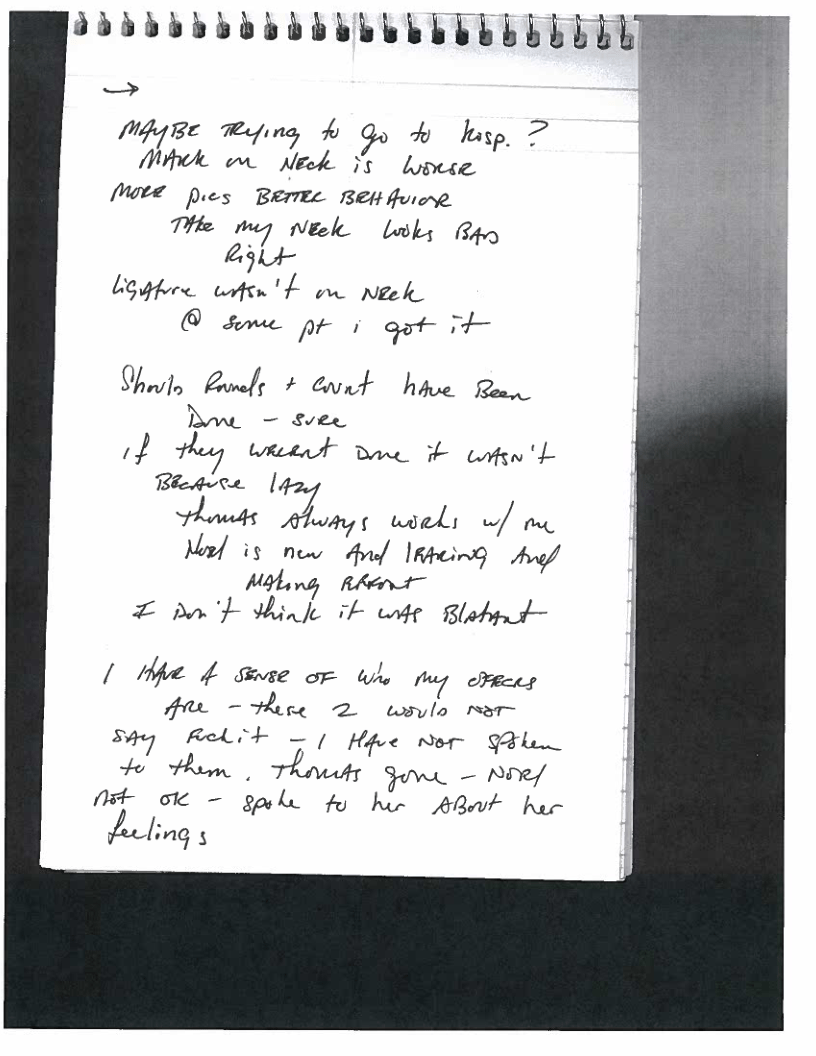 →
MAYBE TRYING to go to hosp. ?
MARK on NECK is WORSE
MORE pics BETTER BEHAVIOR
TAKE my NECK Looks BAD
Right
Ligature wasn't on NECK
@ some pt i got it
Should Rounds + count hAve Been
Done - SURE
if they WERENT Done it WASN'T
BECAUSE lAzy
thomAS AlwAys works w/ me
Noel is new And lEARning And
MAking EFFort
I Don't think it wAS BlAtAnt
I HAVE A SENSE OF Who my OFFICERS
ARE - these 2 would NOT
SAy Fuck it - I HAve NOT SPOken
to them. ThomAS gone - NOEl
not OK - spoke to her ABOUT her
feelings